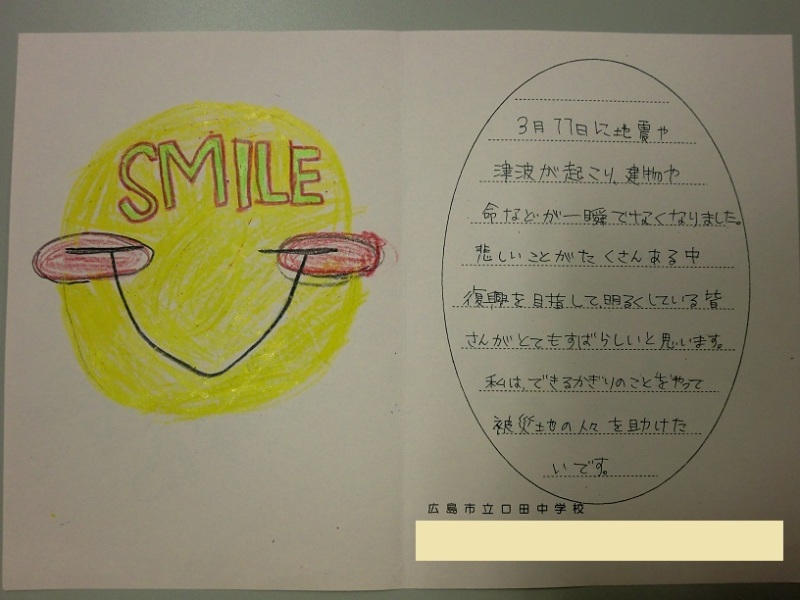 SMILE
3月11日に地震や
津波が起こり、建物や
命などが一瞬でなくなりました。
悲しいことがたくさんある中
復興を目指して、明るくしている皆
さんがとてもすばらしいと思います。
私は、できるかぎりのことをやって
被災地の人々を助けた
いです。
広島市立口田中学校